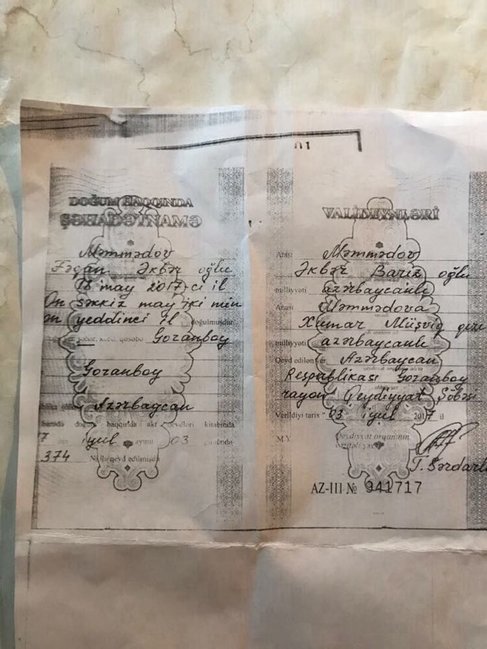 DOĞUM HAQQINDA
ŞƏHADƏTNAMƏ
Məmmədov
Əkbər oğlu
18 may 2017-ci il
On səkkiz may iki min
on yeddinci il doğulmuşdur
şəhər, kənd, qəsəbə Goranboy
Goranboy
Azərbaycan
7 iyul ayının 03
374 № ilə qeyd edilmişdir
VALİDEYNLƏRİ
Atası Məmmədov
Əkbər Bariz oğlu
milliyyəti azərbaycanlı
Anası Məmmədova
Xumar Müşviq qızı
milliyyəti azərbaycanlı
Qeyd edilən Azərbaycan
Respublikası Goranboy
rayon Qeydiyyat Şöbəsi
Verildiyi tarix 03 iyul 2017 il
M.Y.
AZ-III № 941717